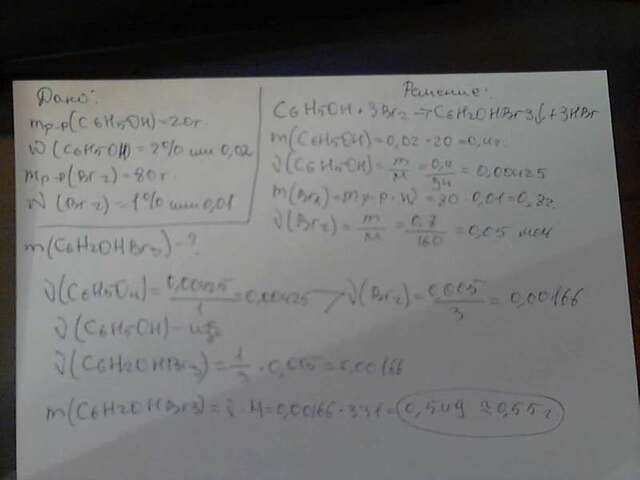 Дано:
mр-р(C6H5OH)=20г.
W(C6H5OH)=2% или 0,02
mр-р(Br2)=80г.
W(Br2)=1% или 0,01
m(C6H2OHBr3)-?
Решение:
C6H5OH+3Br2→C6H2OHBr3↓+3HBr
m(C6H5OH)=0,02·20=0,4г.
ν(C6H5OH)=m/M=0,4/94=0,00425
m(Br2)=mр-р·W=80·0,01=0,8г.
ν(Br2)=m/M=0,8/160=0,05 моль
ν(C6H5OH)=0,00425/1=0,00425>ν(Br2)=0,005/3=0,00166
ν(C6H5OH)-изб
ν(C6H2OHBr3)=1/3·0,005=0,00166
m(C6H2OHBr3)=ν·M=0,00166·331=0,549≈0,55г